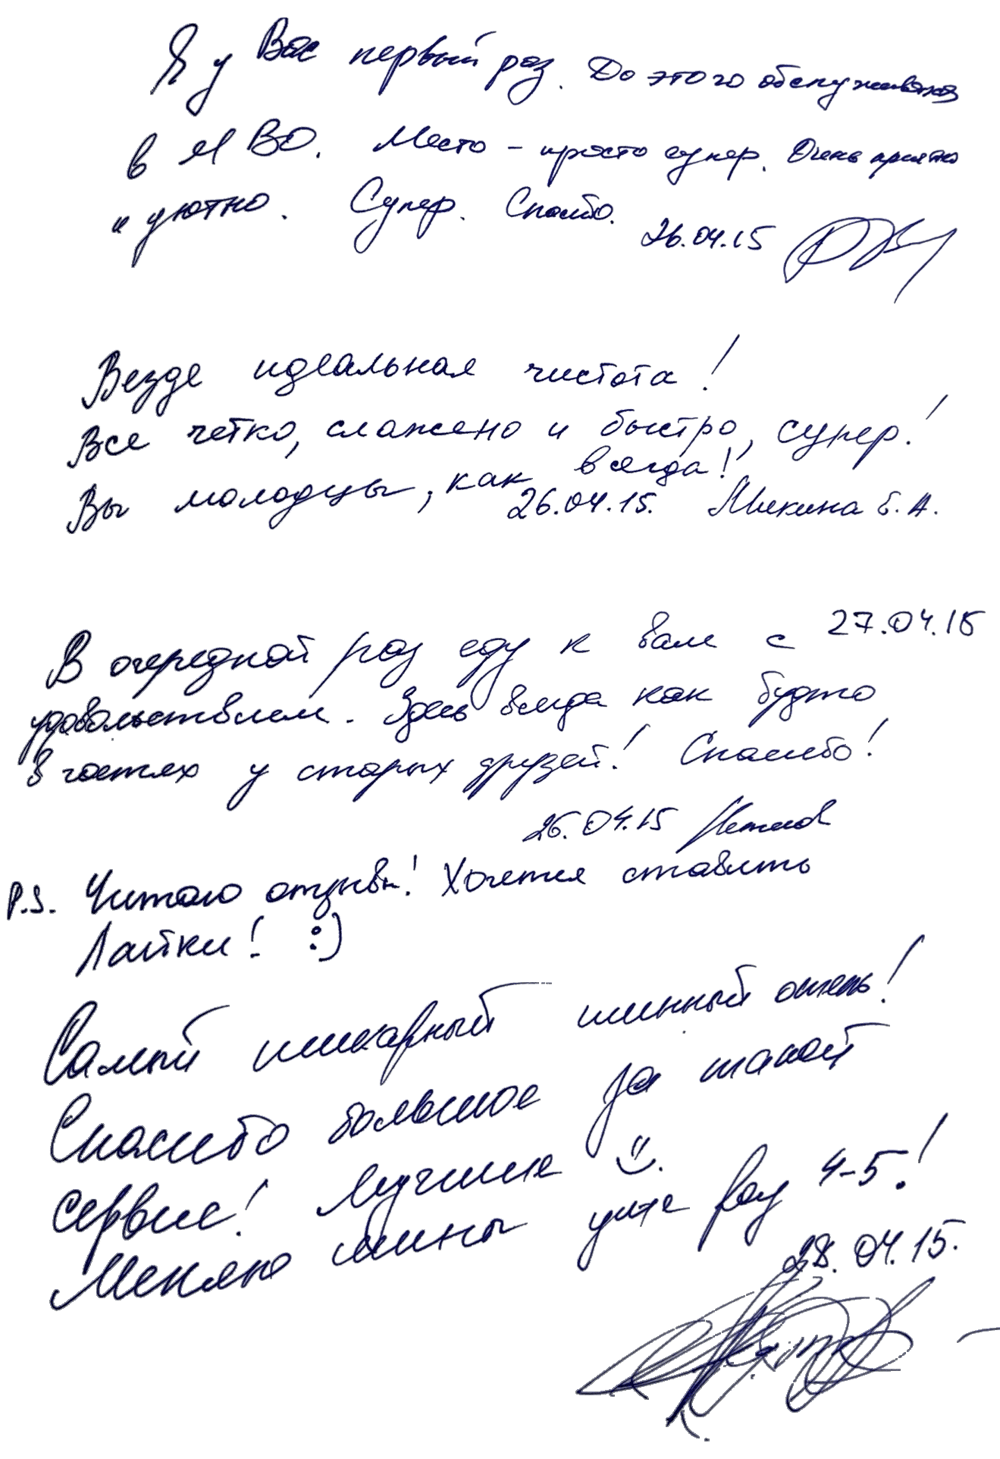 Я у Вас первый раз. До этого обслуживался
в ИВО. Место – просто супер. Очень приятно
и уютно. Супер. Спасибо.
26.04.15
Везде идеальная чистота!
Все четко, слажено и быстро, супер!
Вы молодцы, как всегда!
26.04.15. Микина Е.А.
27.04.15
В очередной раз еду к вам с
удовольствием. Здесь всегда как будто
в гостях у старых друзей! Спасибо!
26.04.15
P.S. Читаю отзывы! Хочется ставить
Лайки! :)
Самый шикарный шинный отель!
Спасибо большое за такой
сервис! Лучшие
Меняю шины уже раз 4-5!
28.04.15.